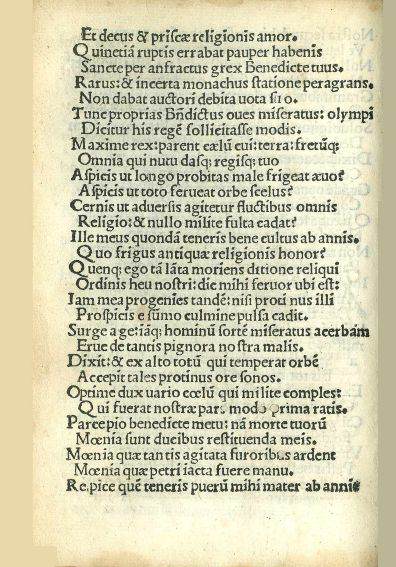 Et decus & priscæ religionis amor.
Quinetiã ruptis errabat pauper habenis
Sancte per anfractus grex Benedicte tuus.
Rarus: & incerta monachus statione peragrans.
Non dabat auctori debita uota
Tunc proprias Bñdictus oues miseratus: olympi
Dicitur his regẽ sollicitasse modis.
Maxime rex: parent cælũ cui: terra: fretũq;
Omnia qui nutu dasq; regisq; tuo
Aspicis ut longo probitas male frigeat æuo?
Aspicis ut toto ferueat orbe scelus?
Cernis ut aduersis agitetur fluctibus omnis
Religio: & nullo milite fulta cadat?
Ille meus quondã teneris bene cultus ab annis.
Quo frigus antiquæ religionis honor?
Quenq; ego tã lãta moriens ditione reliqui
Ordinis heu nostri: die mihi feruor ubi est:
Iam mea progenies tandẽ: nisi protinus illi
Prospicis e sũmo culmine pulsa cadit.
Surge age: iãq; hominũ sortẽ miseratus acerbam
Erue de tantis pignora nostra malis.
Dixit: & ex alto totũ qui temperat orbẽ
Accepit tales protinus ore sonos.
Optime dux uario cœlũ qui milite comples:
Qui fuerat nostræ pars modo prima ratis.
Parce pio benedicte metu: nã morte tuorũ
Mœnia sunt ducibus restituenda meis.
Mœnia quæ tantis agitata furoribus ardent
Mœnia quæ petri iacta fuere manu.
Respice quẽ teneris puerũ mihi mater ab annis